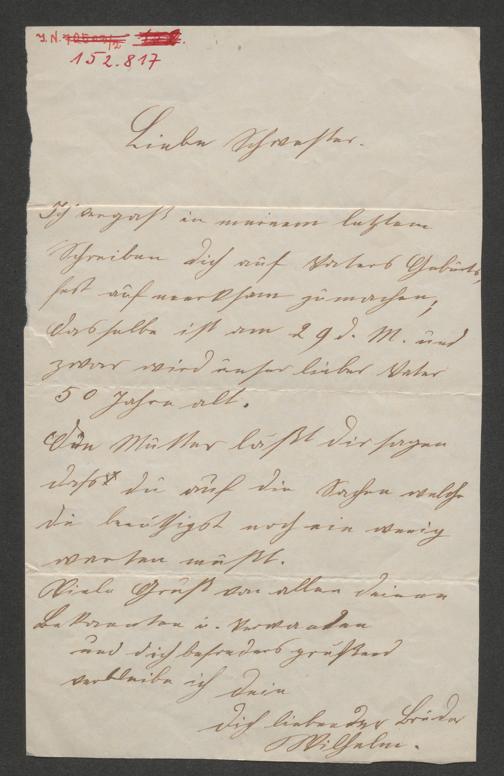 J. N.
152.817
Liebe Schwester.
Ich vergaß in meinem letztem
Schreiben dich auf Vaters Geburts-
fest aufmerksam zu machen,
dasselbe ist am 29 d. M. und
zwar wird unser lieber Vater
50 Jahre alt.
Die Mutter läßt dir sagen
daß du auf die Sachen welche
du benöthigst noch ein wenig
warten mußt.
Viele Grüß von allen deinen
Bekannten u. Verwanden
und dich besonders grüßend
verbleibe ich dein
dich liebender Bruder
Wilhelm.